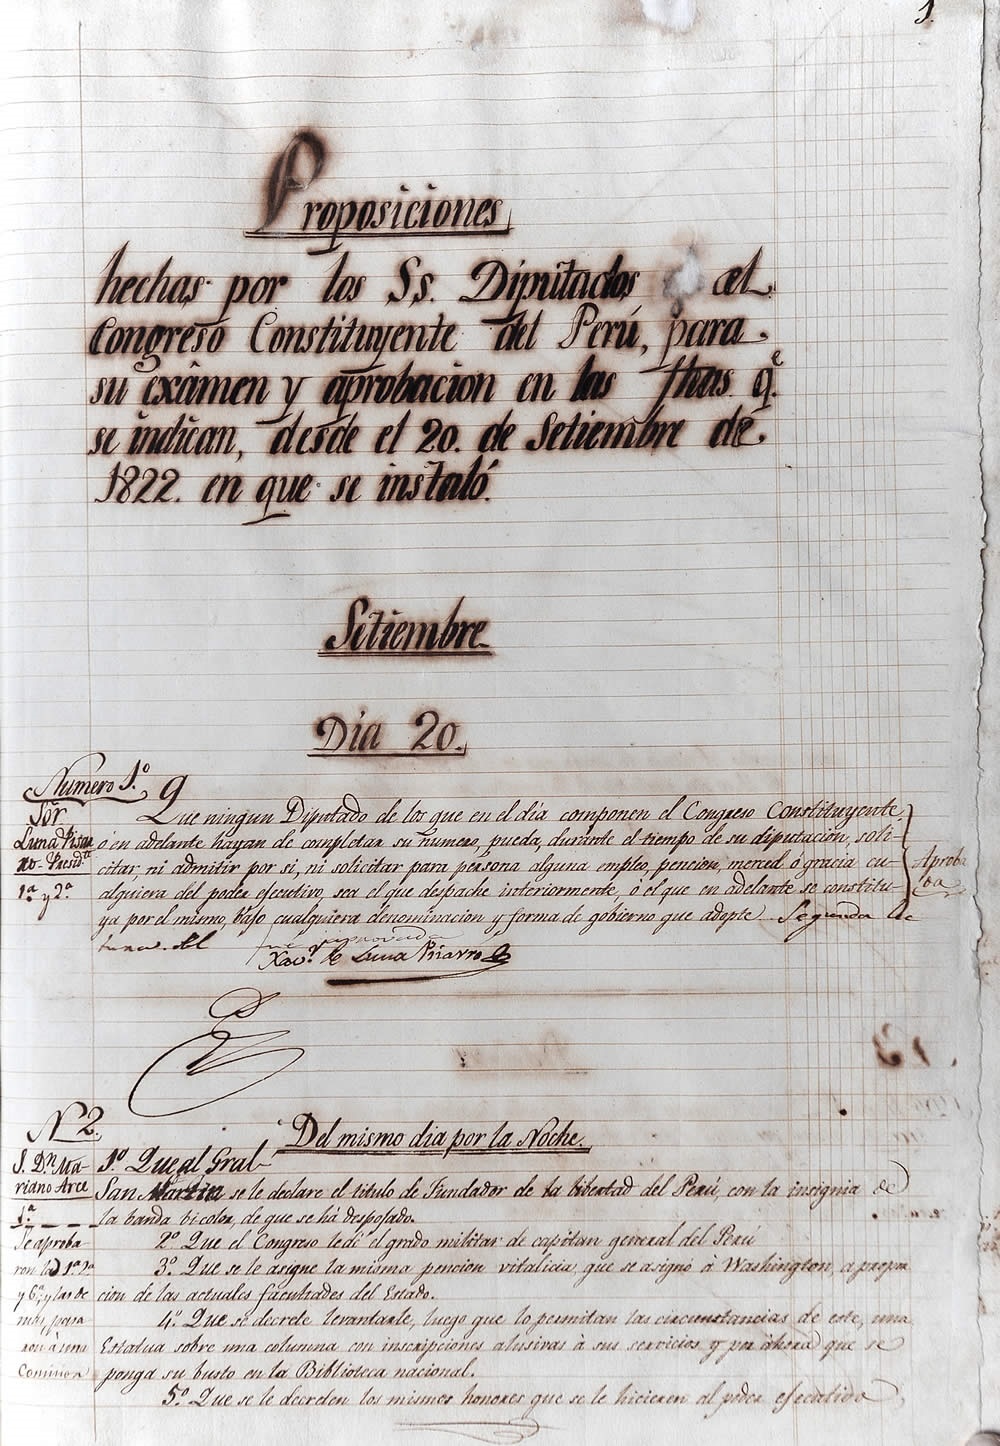 1.
Proposiciones
hechas por los S.s. Diputados al
Congreso Constituyente del Perú, para
su exâmen y aprobacion en las fhas. q.e
se indican, desde el 20. de Setiembre de
1822. en que se instaló.
Setiembre
Dia 20.
Numero 1.º
Sôr
Luna Pizar
ro- Presid.te
1.ª y 2.ª
Que ningun Diputado de los que en el dia componen el Congreso Constituyente,
ó en adelante hayan de completar su numero, pueda, durante el tiempo de su diputacion, soli-
citar, ni admitir por si, ni solicitar para persona alguna empleo, pencion, merced ó gracia cu-
alquiera del poder ejecutivo, sea el que despache interiormente, ó el que en adelante se constitu-
ya por el mismo, bajo cualquiera denominacion y forma de gobierno que adopte. Segunda lec-
tura.
fue aprovada
Xav.r de Luna Pizarro
Aproba
ba
N 2.
S. D.n Ma-
riano Arce
1.ª
Se aproba
ron la 1.ª 2.ª
y 6.ª, y las de
mas, pasa
ron á una
Comision
Del mismo dia por la Noche.
1.º Que al Gral
San Martin se le declare el titulo de Fundador de la libertad del Perú, con la insignia de
la banda bicolor, de que se há despojado.
2.º Que el Congreso le dé el grado militar de capitan general del Perú
3.º Que se le asigne la misma pencion vitalicia, que se asignó á Washington, a propor
cion de las actuales facultades del Estado.
4.º Que se decrete levantarle, luego que lo permitan las circunstancias de este, una
Estatua sobre una columna con inscripciones alusivas á sus servicios, y por ahora que se
ponga su busto en la Biblioteca nacional.
5.º Que se le decreten los mismos honores que se le hicieren al poder ejecutivo